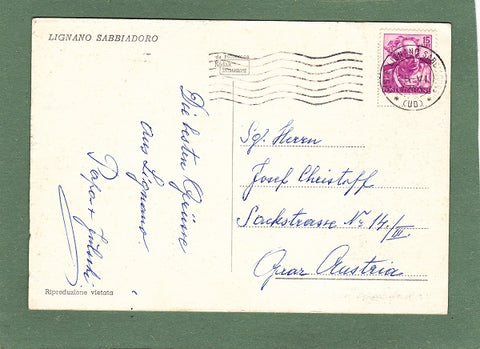 LIGNANO SABBIADORO
15
(UD)
Die besten Grüsse
aus Lignano.
Papa +
Sgl. Herrn
Josef Christoff
Sackstrasse Nr. 14/III
Graz Austria
Riproduzione vietata